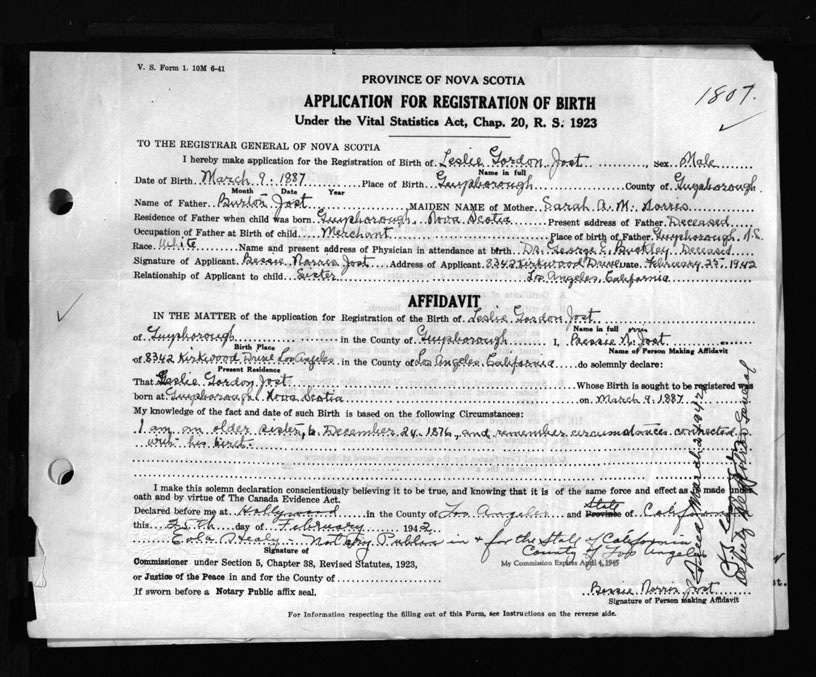 V. S. Form 1. 10M 6-41
PROVINCE OF NOVA SCOTIA
1807.
APPLICATION FOR REGISTRATION OF BIRTH
Under the Vital Statistics Act, Chap. 20, R. S. 1923
TO THE REGISTRAR GENERAL OF NOVA SCOTIA
I hereby make application for the Registration of Birth of Leslie Gordon Jost sex Male
Name in full
Date of Birth March 9. 1887 Place of Birth Guysborough County of Guysborough
Month Date Year
Name of Father Burton Jost MAIDEN NAME of Mother Sarah A. M. Norris
Residence of Father when child was born Guysborough, Nova Scotia Present address of Father Deceased
Occupation of Father at Birth of child Merchant Place of birth of Father Guysborough N.S.
Race White Name and present address of Physician in attendance at birth Dr. George E. Buckley, Deceased
Signature of Applicant Bessie Norris Jost Address of Applicant 8342 Kirkwood Drive Date February 25, 1942
Relationship of Applicant to child Sister Los Angeles, California
AFFIDAVIT
IN THE MATTER of the application for Registration of the Birth of Leslie Gordon Jost
Name in full
of Guysborough in the County of Guysborough I, Bessie N. Jost
Birth Place Name of Person Making Affidavit
of 8342 Kirkwood Drive Los Angeles in the County of Los Angeles, California do solemnly declare:
Present Residence
That Leslie Gordon Jost Whose Birth is sought to be registered was
born at Guysborough, Nova Scotia on March 9. 1887
My knowledge of the fact and date of such Birth is based on the following Circumstances:
I am an older sister, b. December 24. 1876, and remember circumstances connected
with his birth.
I make this solemn declaration conscientiously believing it to be true, and knowing that it is of the same force and effect as if made under
oath and by virtue of The Canada Evidence Act.
Declared before me at Hollywood in the County of Los Angeles and State Province of California
this 25th day of February 1942.
Eola Healy - Notary Public in & for the State of California
Signature of County of Los Angeles
Commissioner under Section 5, Chapter 38, Revised Statutes, 1923, My Commission Expires April 4, 1945
or Justice of the Peace in and for the County of
If sworn before a Notary Public affix seal. Bessie Norris Jost
Signature of Person making Affidavit
For Information respecting the filling out of this Form, see Instructions on the reverse side.
Deputy Registrar General